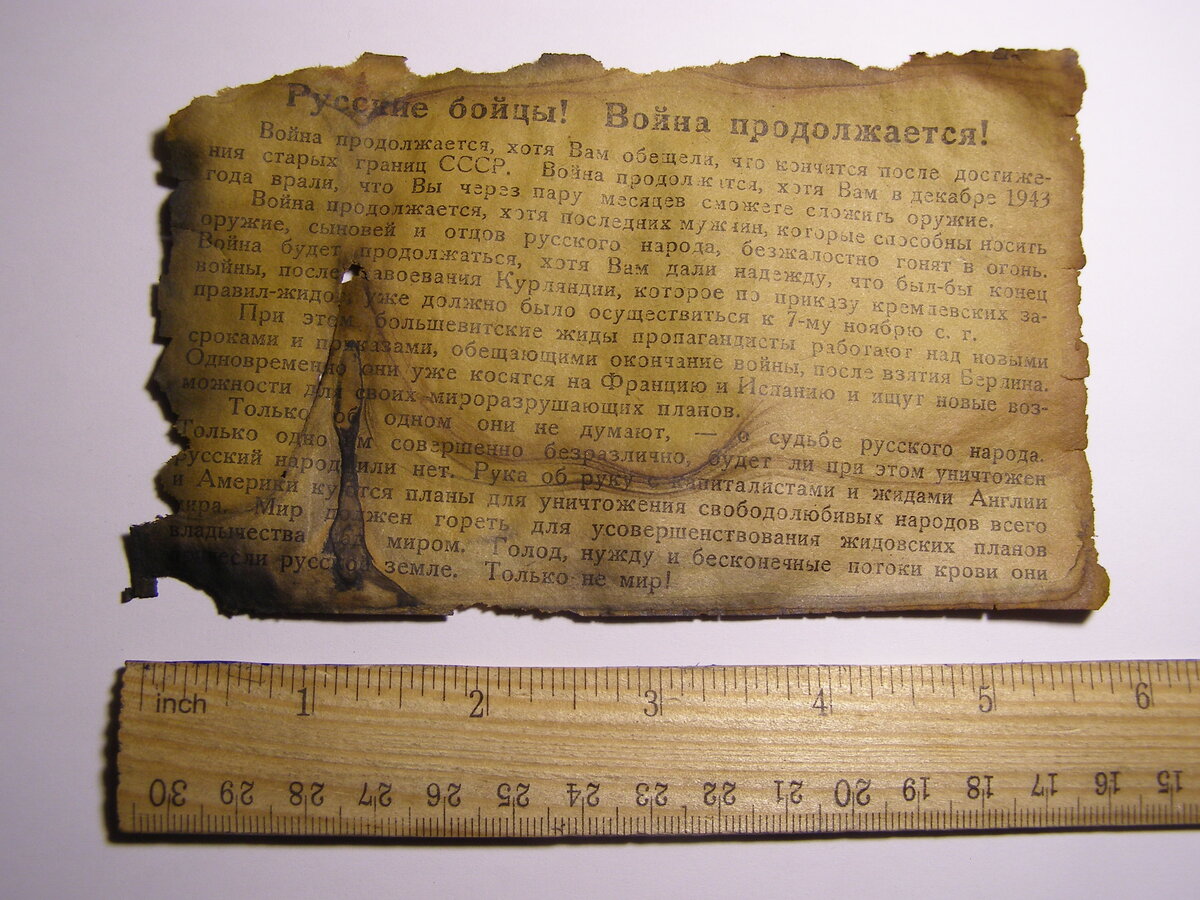 Русские бойцы! Война продолжается!
Война продолжается, хотя Вам обещели, что кончится после достиже-
ния старых границ СССР. Война продолжается, хотя Вам в декабре 1943
года врали, что Вы через пару месяцев сможете сложить оружие.
Война продолжается, хотя последних мужчин, которые способны носить
оружие, сыновей и отцов русского народа, безжалостно гонят в огонь.
Война будет продолжаться, хотя Вам дали надежду, что был-бы конец
войны, после завоевания Курляндии, которое по приказу кремлевских за-
правил-жидов уже должно было осуществиться к 7-му ноябрю с. г.
При этом большевитские жиды пропагандисты работают над новыми
сроками и приказами, обещающими окончание войны, после взятия Берлина.
Одновременно они уже косятся на Францию и Испанию и ищут новые воз-
можности для своих мироразрушающих планов.
Только об одном они не думают, — о судьбе русского народа.
Только одно им совершенно безразлично, будет ли при этом уничтожен
русский народ или нет. Рука об руку с капиталистами и жидами Англии
и Америки куются планы для уничтожения свободолюбивых народов всего
мира. Мир должен гореть для усовершенствования жидовских планов
владычества над миром. Голод, нужду и бесконечные потоки крови они
русской земле. Только не мир!
inch 1 2 3 4 5 6
30 29 28 27 26 25 24 23 22 21 20 19 18 17 16 15